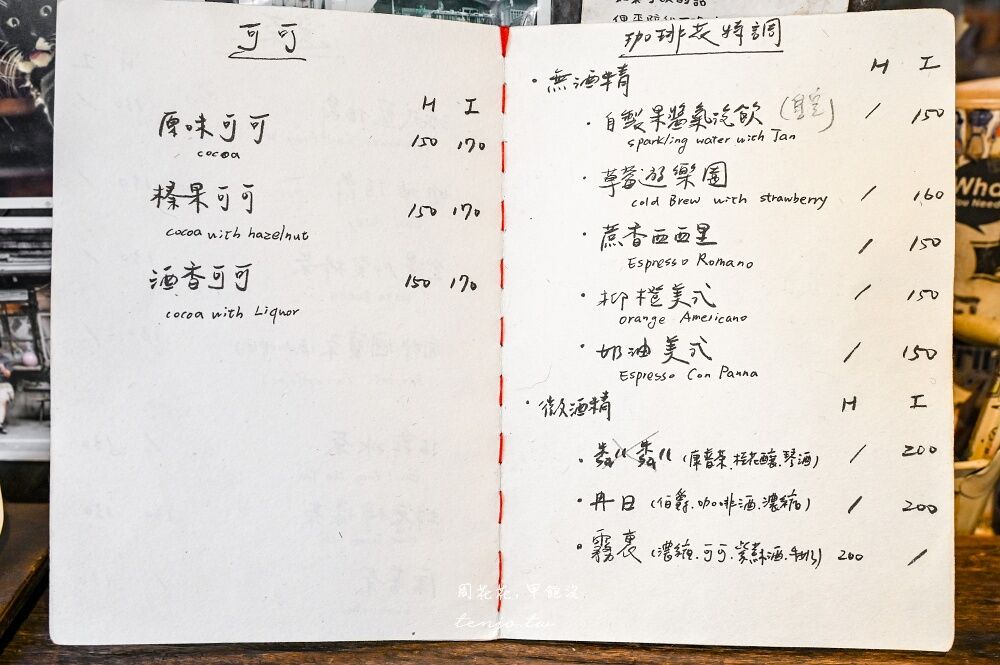 可可
H I
原味可可 150 170
cocoa
榛果可可 150 170
cocoa with hazelnut
酒香可可 150 170
cocoa with Liquor
珈琲表特調
・無酒精 H I
・自製果醬氣泡飲 / 150
sparkling water with Jan
・草莓遊樂園 / 160
cold Brew with strawberry
・蔗香西西里 / 150
Espresso Romano
・柳橙美式 / 150
orange Americano
・奶油美式 / 150
Espresso Con Panna
・微酒精 H I
・(摩昔茶.桂花釀.琴酒) / 200
・丹日 (伯爵.咖啡酒.濃縮) / 200
・霧裏 (濃縮.可可.紫蘇酒.牛奶) 200 /
周花花，甲飽沒
tenjo.tw
Who
You Need